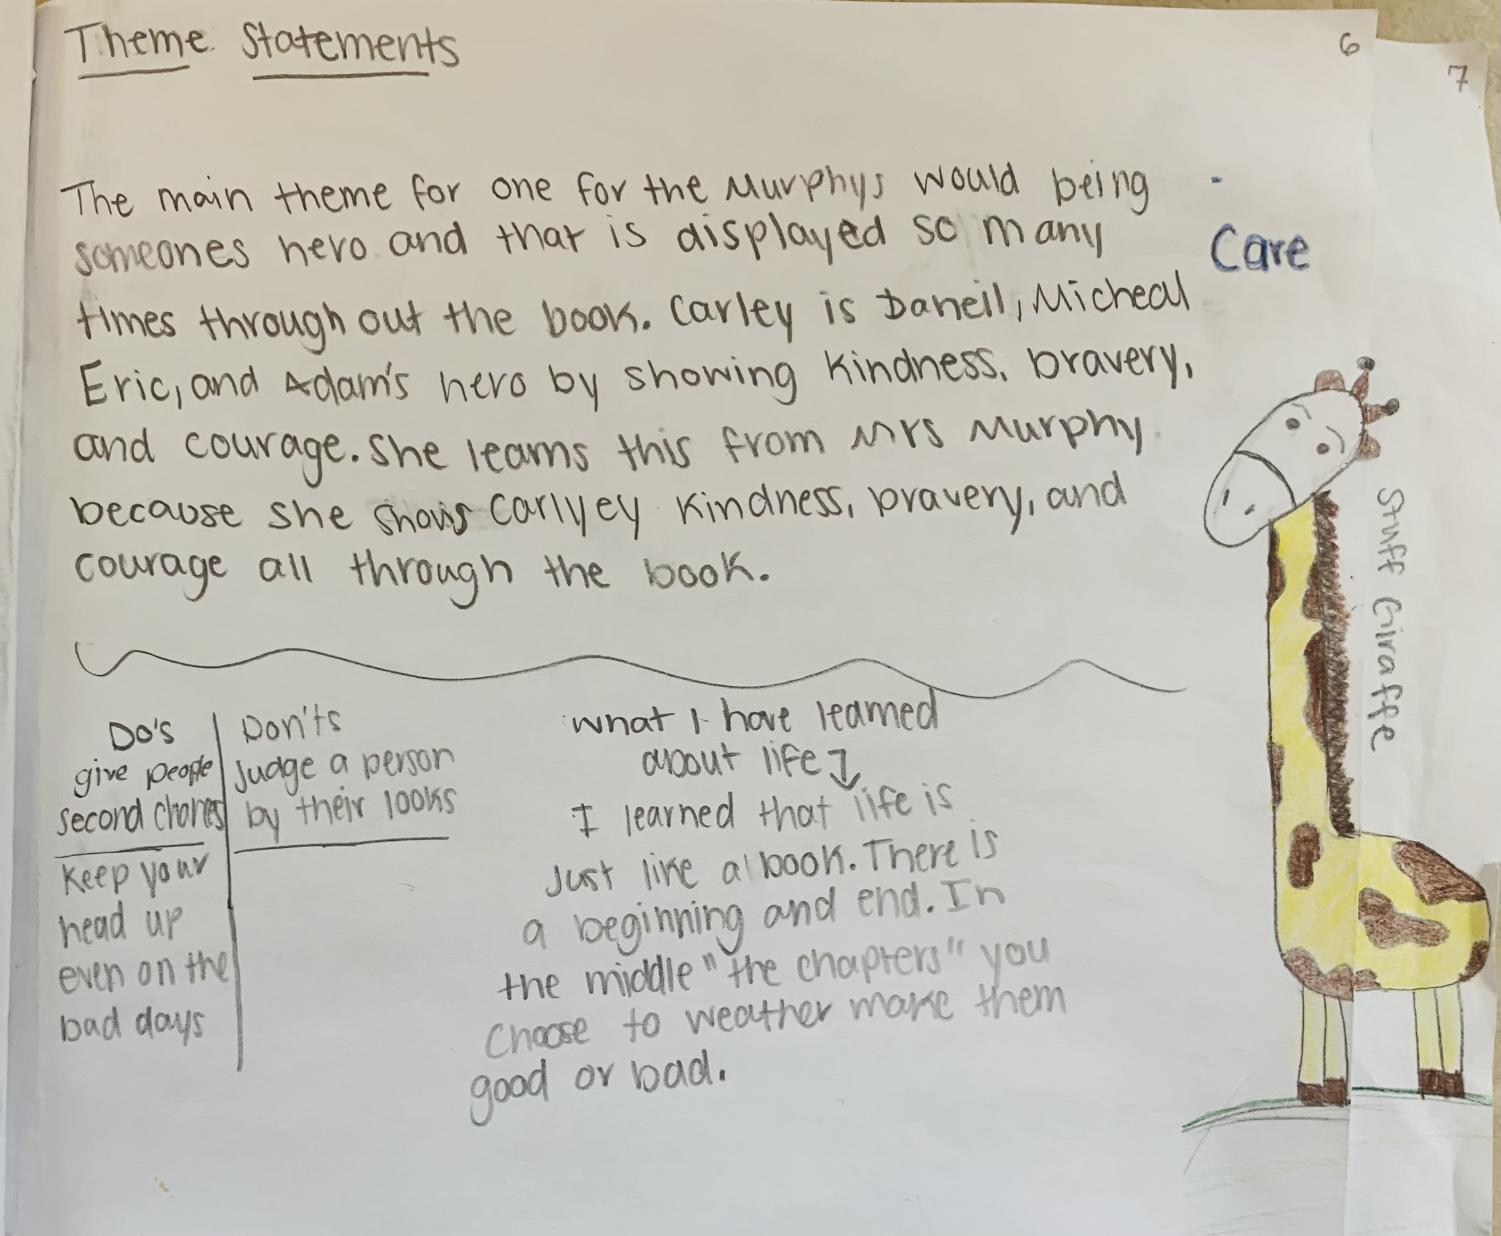 Theme Statements
6
7
The main theme for one for the Murphys would being
someones hero and that is displayed so many
times through out the book. Carley is Daneil, Micheal
Eric, and Adam's hero by showing kindness, bravery,
and courage. She learns this from Mrs Murphy
because she shows Carlyey kindness, bravery, and
courage all through the book.
Care
Stuff Giraffe
Do's
give people
second chances
Keep your
head up
even on the
bad days
Don'ts
Judge a person
by their looks
what I have learned
about life
I learned that life is
Just like a book. There is
a beginning and end. In
the middle "the chapters" you
choose to weather make them
good or bad.